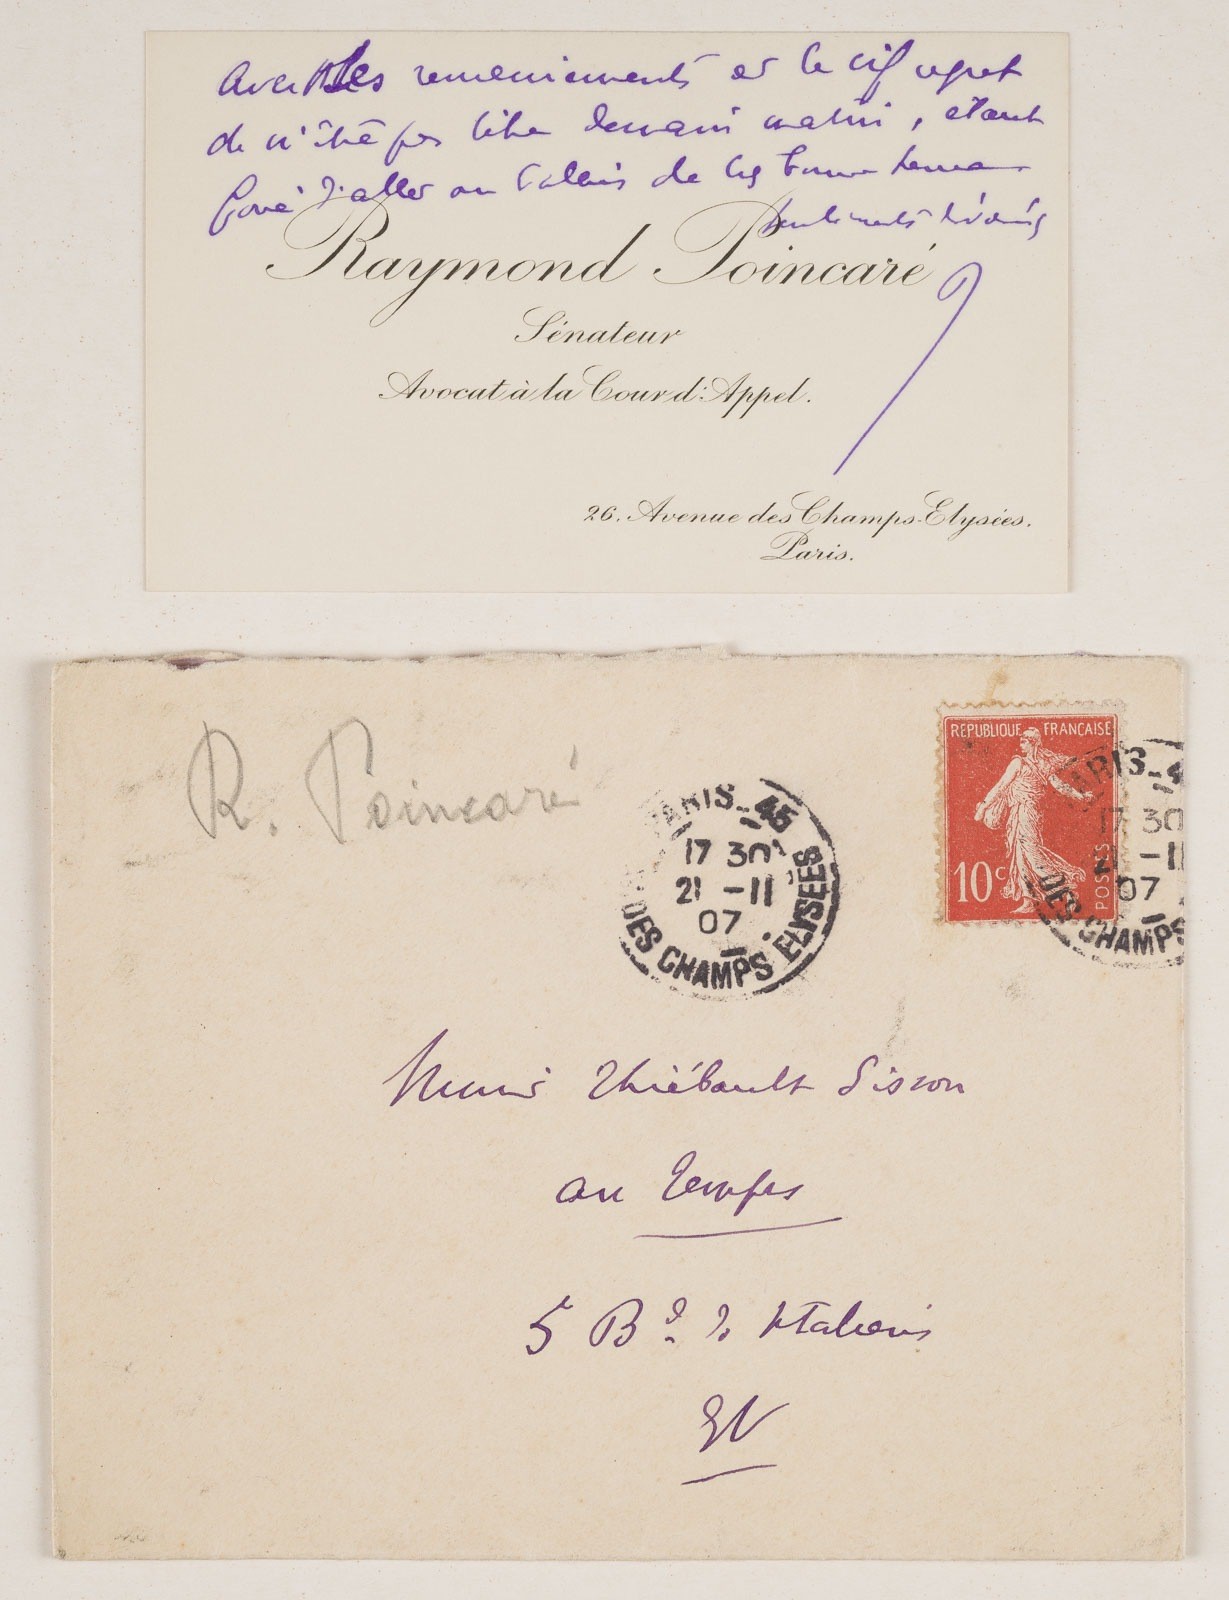 Avec les remerciements et le vif regret
de n'être pas libre demain matin, étant
forcé d'aller au Palais de
sentiments dévoués
Raymond Poincaré
Sénateur
Avocat à la Cour d'Appel.
26. Avenue des Champs-Elysées.
Paris.
R. Poincaré
REPUBLIQUE FRANÇAISE
10c
POSTES
PARIS_45
17 30
21 -11
07
DES CHAMPS ELYSEES
PARIS_4
17 30
21 -11
07
DES CHAMPS
Thiébault Sisson
au Temps
5 Bd. des Italiens
EV